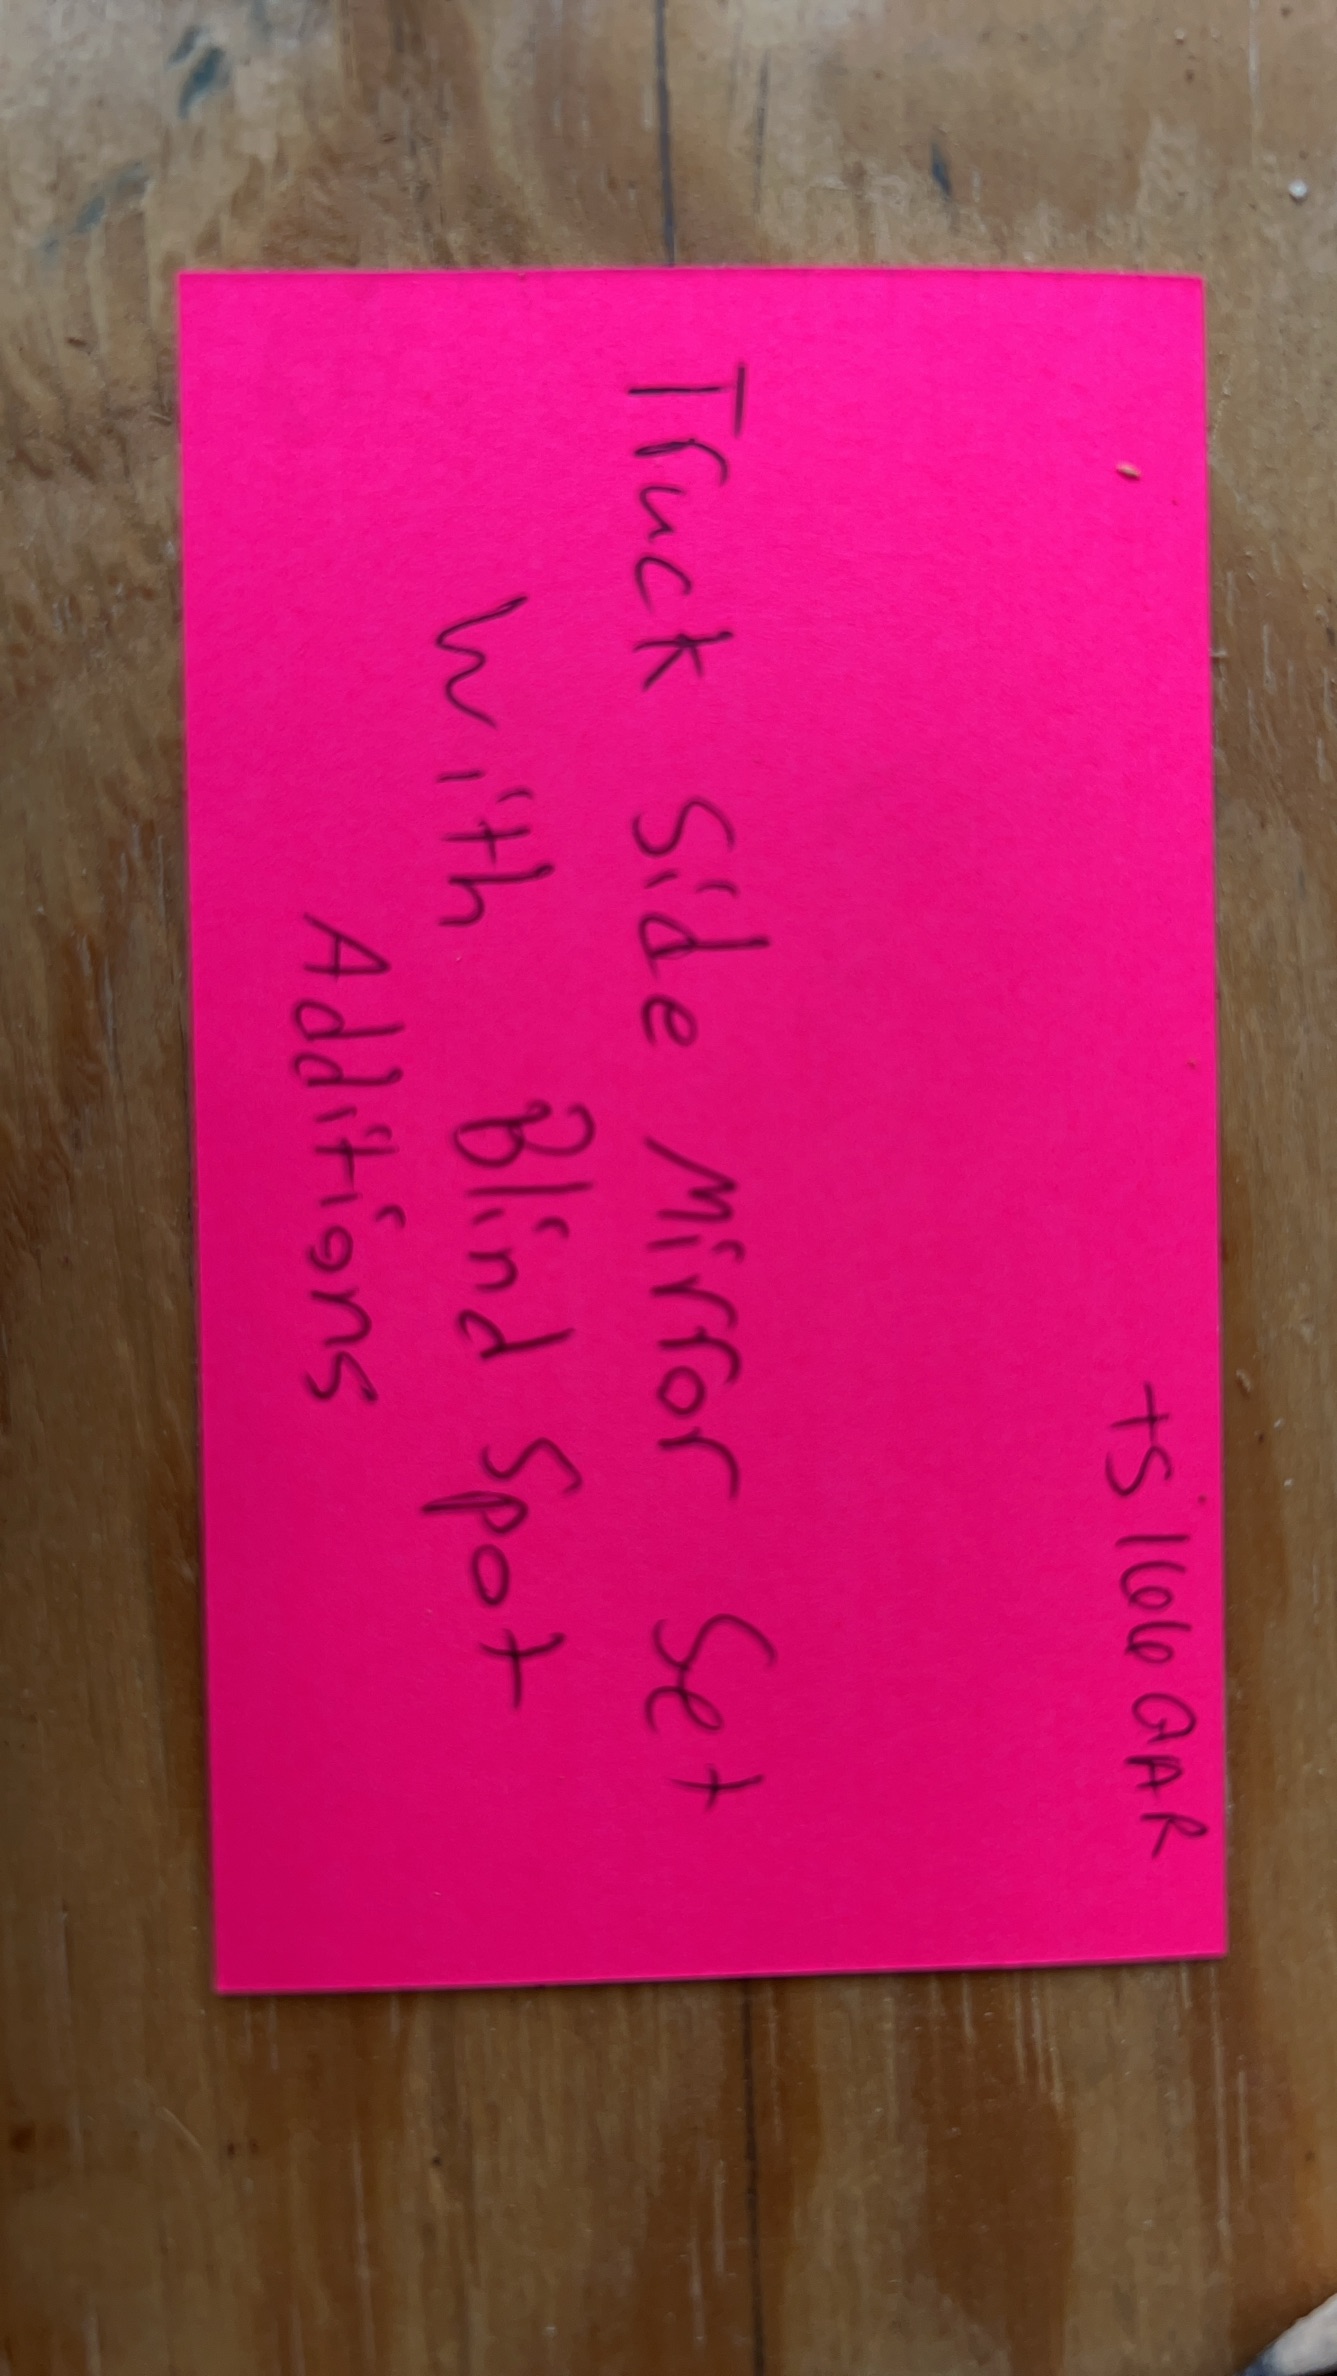 TS1666GAR
Truck Side Mirror Set
With Blind Spot
Additions